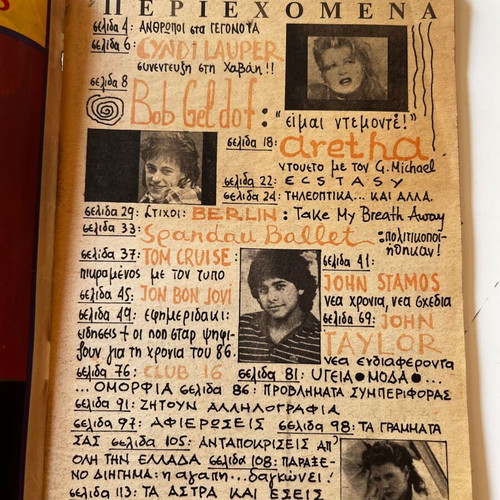 ΠΕΡΙΕΧΟΜΕΝΑ
σελίδα 4: ΑΝΘΡΩΠΟΙ στα ΓΕΓΟΝΟΤΑ
σελίδα 6: CYNDI LAUPER
συνεντευξη στη Χαβάη!!
σελίδα 8
Bob Geldof: "είμαι ντεμοντέ!"
σελίδα 18: aretha
ντουέτο με τον G. Michael
σελίδα 22: ECSTASY
σελίδα 24: ΤΗΛΕΟΠΤΙΚΑ... ΚΑΙ ΑΛΛΑ.
σελίδα 29: ΣΤΙΧΟΙ: BERLIN: Take My Breath Away
σελίδα 33: Spandau Ballet: πολιτικοποιήθηκαν!
σελίδα 37: TOM CRUISE:
πικραμένος με τον τυπο
σελίδα 41:
JOHN STAMOS
νεα χρονια, νεα σχεδια
σελίδα 45: JON BON JOVI
σελίδα 49: εφημεριδακι:
ειδησεις + οι ποπ σταρ ψηφιζουν για τη χρονια του 86.
σελίδα 69: JOHN
TAYLOR
νεα ενδιαφεροντα
σελίδα 76: CLUB 16
σελίδα 81: ΥΓΕΙΑ•ΜΟΔΑ•...
...ΟΜΟΡΦΙΑ σελίδα 86: ΠΡΟΒΛΗΜΑΤΑ ΣΥΜΠΕΡΙΦΟΡΑΣ
σελίδα 91: ΖΗΤΟΥΝ ΑΛΛΗΛΟΓΡΑΦΙΑ
σελίδα 97: ΑΦΙΕΡΩΣΕΙΣ σελίδα 98: ΤΑ ΓΡΑΜΜΑΤΑ
ΣΑΣ σελίδα 105: ΑΝΤΑΠΟΚΡΙΣΕΙΣ ΑΠ'
ΟΛΗ ΤΗΝ ΕΛΛΑΔΑ σελίδα 108: ΠΑΡΑΞΕ-
ΝΟ ΔΙΗΓΗΜΑ: η αγαπη... δαγκώνει!
σελίδα 113: ΤΑ ΑΣΤΡΑ ΚΑΙ ΕΣΕΙΣ